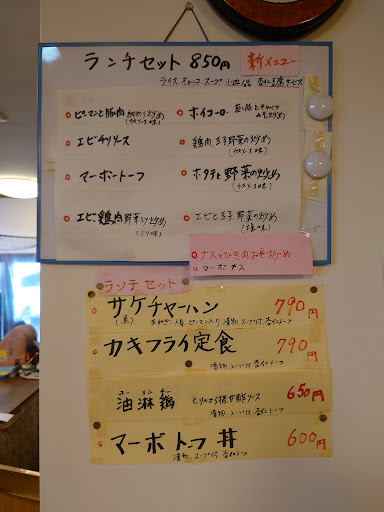 ランチセット 850円 新メニュー
ライス、スープ、小皿1品、杏仁豆腐サービス
ピーマンと豚肉細切り炒め
(カキソース味)
ホイコーロー 豚肉とキャベツ
みそ炒め
エビチリソース
鶏肉、玉子、野菜の炒め
(カキソース味)
マーボートーフ
ホタテと野菜の炒め
(カキソース味)
エビ、鶏肉、野菜炒め
エビと玉子、野菜の炒め
(塩味)
ナスとひき肉みそ炒め
マーボナス
ランチセット
サケチャーハン 790円
漬物、スープ付、杏仁トーフ
カキフライ定食 790円
漬物、スープ付、杏仁トーフ
ユーリンチー
油淋鶏 とりのから揚甘酢ソース 650円
漬物、スープ付、杏仁トーフ
マーボトーフ丼 600円
漬物、スープ付 杏仁トーフ